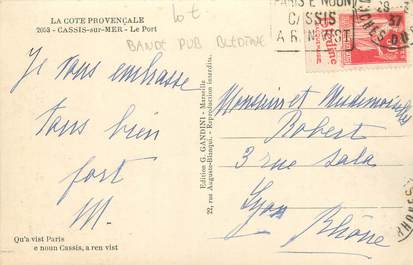 LA COTE PROVENÇALE
2053 - CASSIS-sur-MER - Le Port
lot
BANDE PUB BLEDINE
PARIS E NOUN
CASSIS
A REN VIST
29
37
Blédine
Je vous embrasse
tous bien
fort
M.
Edition G. GANDINI - Marseille
22, rue Auguste-Blanqui. - Reproduction interdite.
Monsieur et Mademoiselle
Robert
3 rue Sala
Lyon
Rhône
Qu'a vist Paris
e noun Cassis, a ren vist